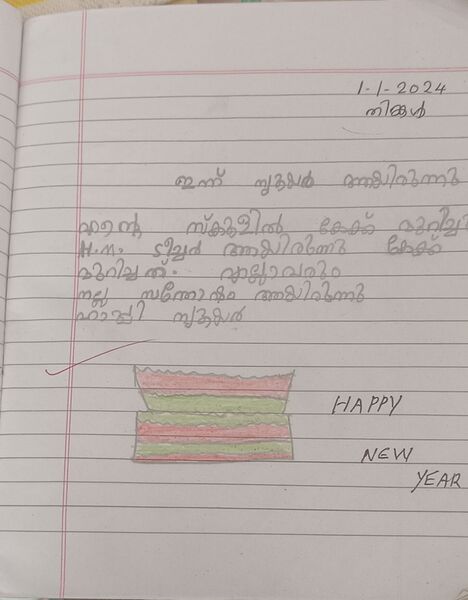 1-1-2024
തിങ്കൾ
ഇന്ന് ന്യൂയർ ആയിരുന്നു
എന്റെ സ്കൂളിൽ കേക്ക് മുറിച്ചു
H.M. ടീച്ചർ ആയിരുന്നു കേക്ക്
മുറിച്ചത്. എല്ലാവരും
നല്ല സന്തോഷം ആയിരുന്നു
ഹാപ്പി ന്യൂയർ
HAPPY
NEW
YEAR